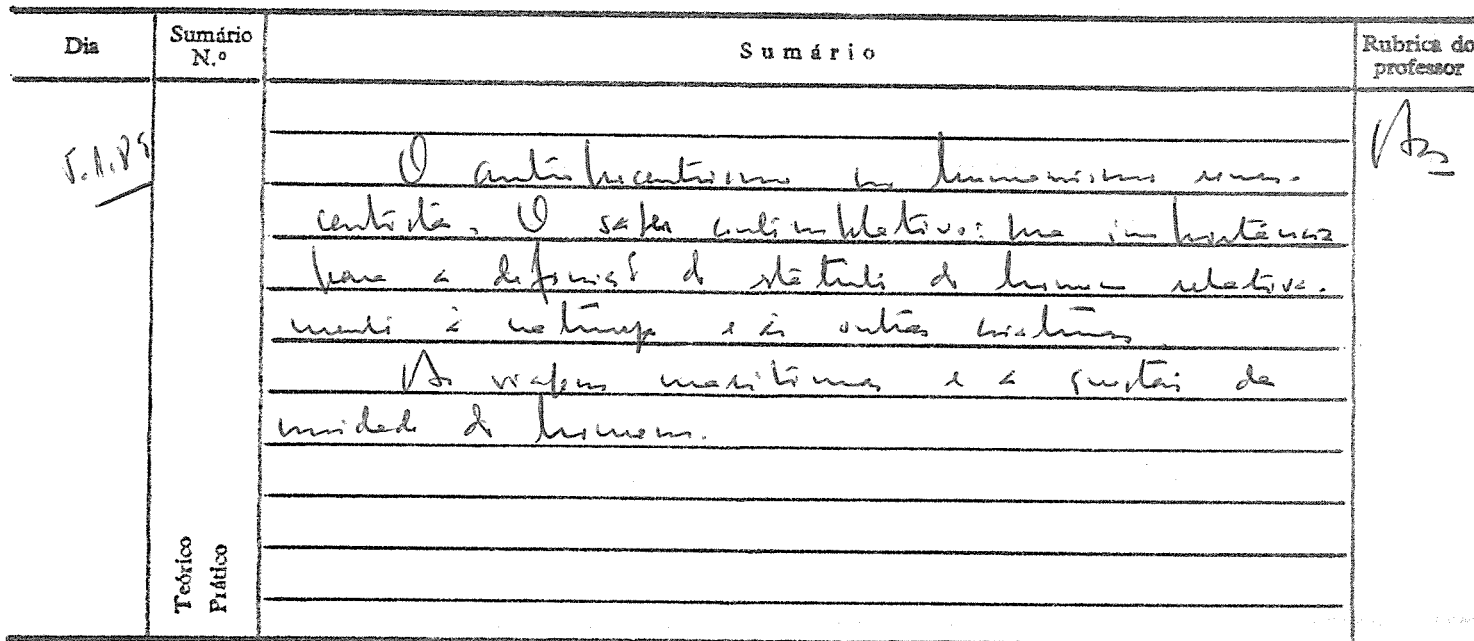 Dia
Sumário N.º
Sumário
Rubrica do professor
O antropocentrismo no humanismo renas-
centista. O saber contemplativo: sua importância
para a definição do estatuto do homem relativa-
mente à natureza e às outras criaturas.
As viagens marítimas e a questão da
unidade do homem.
Teórico
Prático